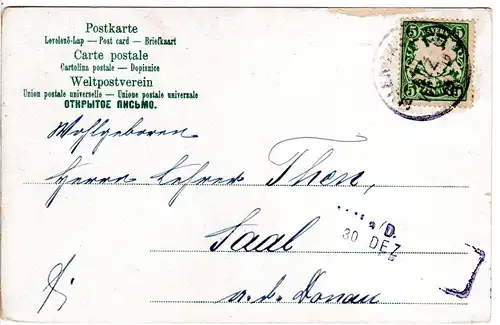 Postkarte
Levelező-Lap — Post card — Briefkaart
Carte postale
Cartolina postale — Dopisnice
Weltpostverein
Union postale universelle — Unione postale universale
ОТКРЫТОЕ ПИСЬМО.
BAYERN
5 5
5 5
Wohlgeboren
Herrn Lehrer Then,
a/D.
30 DEZ
Saal
a. d. Donau